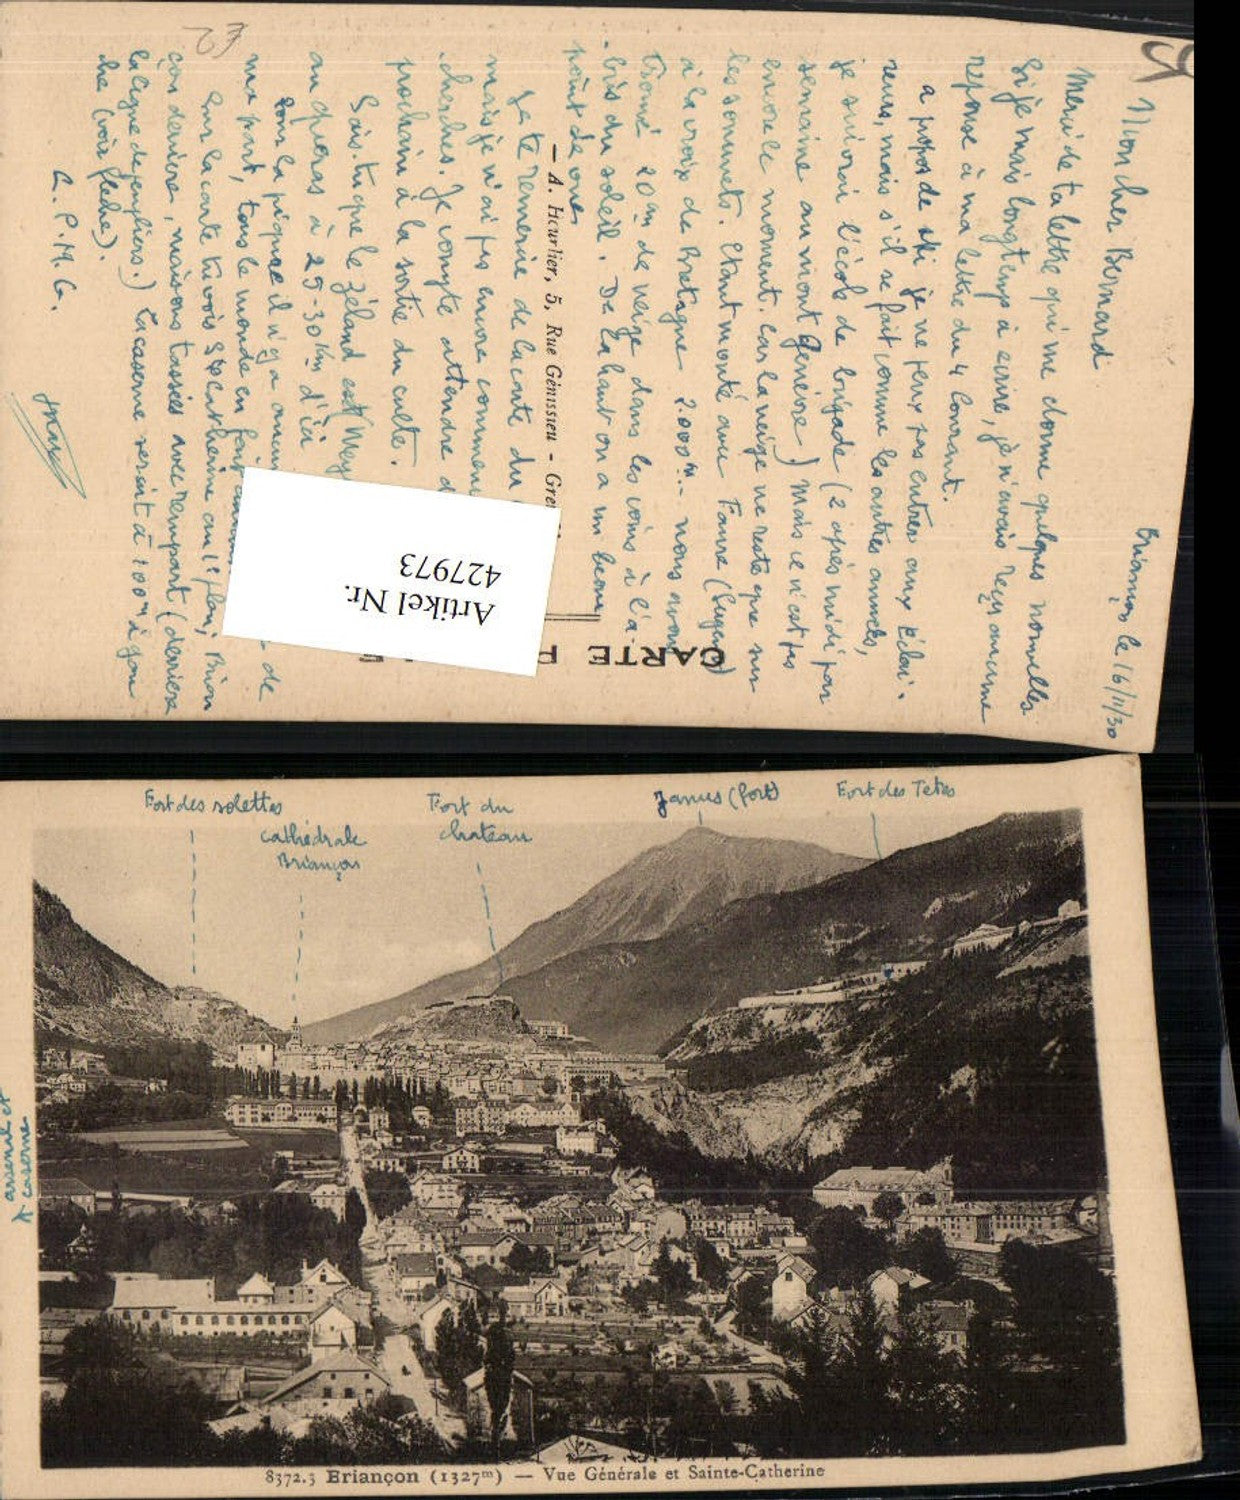 Briançon le 16/11/30
Mon cher Bernard
Merci de ta lettre qui me donne quelques nouvelles.
Si je mais longtemps à écrire, je n'avais reçu aucune
réponse à ma lettre du 4 Courant.
a propos de ski je ne peux pas entrer aux Eclai-
reurs, mais s'il se fait comme les autres années,
je suivrai l'école de brigade (2 après midi par
semaine au mont Genèvre) mais ce n'est pas
encore le moment. Car la neige ne reste que sur
les sommets. Etant monté avec Faure (Eugene)
à la croix de Bretagne 2.000m - nous avons
trouvé 20 m de neige dans les coins à l'a-
bris du soleil. De là haut on a un beau
point de vue
Je te remercie de la carte du
mais je n'ai pas encore commencé
cherches. Je compte attendre d
prochain à la sortie du culte.
Sais-tu que le Zéland est
au gueras à 25-30 Km d'ici
Pour la pique il n'y a aucun
ma part, tout le monde en fait de
Sur la carte tu vois Ste Catherine au 1e plan, Brian
çon derrière, maisons tassées avec rempart (derrière
la ligne de peupliers.) La caserne serait à 100m à gau
che (vois flèche).
E. P. M. G.
— A. Heurlier, 5, Rue Génissieu - Gre
CARTE P
Artikel Nr.
427973
Fort des solettes
cathédrale
Briançon
Fort du
chateau
Janus (fort)
Fort des Tetes
arsenal et
caserne
8372.3 Briançon (1327m) — Vue Générale et Sainte-Catherine